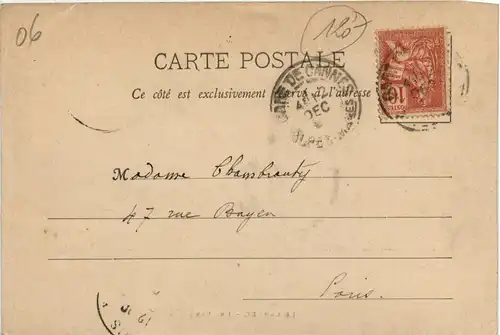 06
120
CARTE POSTALE
Ce côté est exclusivement réservé à l'adresse
GARE DE CANNES
DEC
ALPES-MARIMES
10
Madame
47 rue Bayen
Paris.